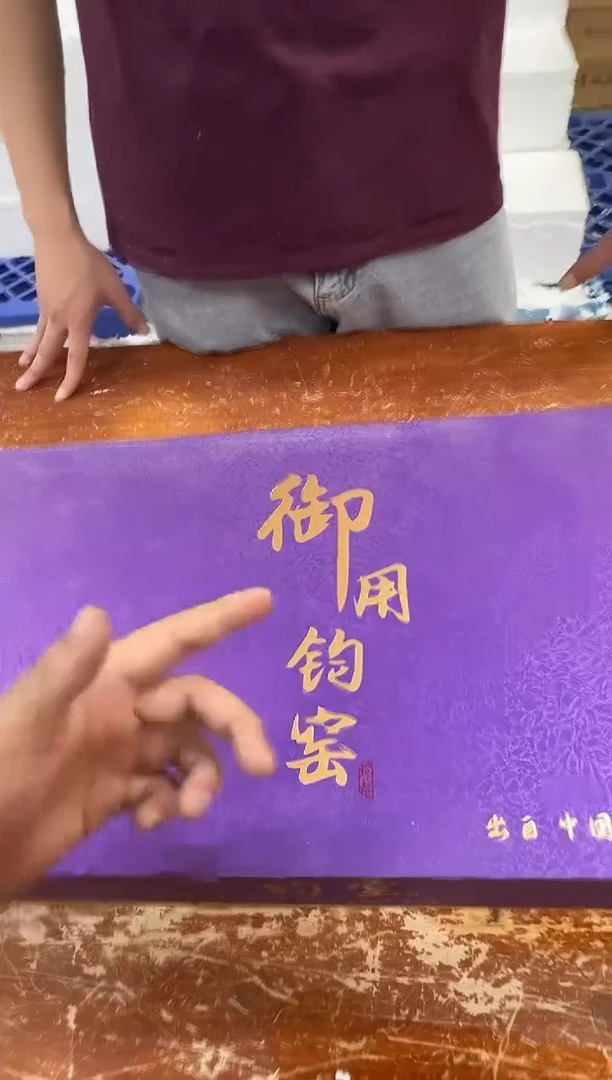 御用
钧窑
出自中国